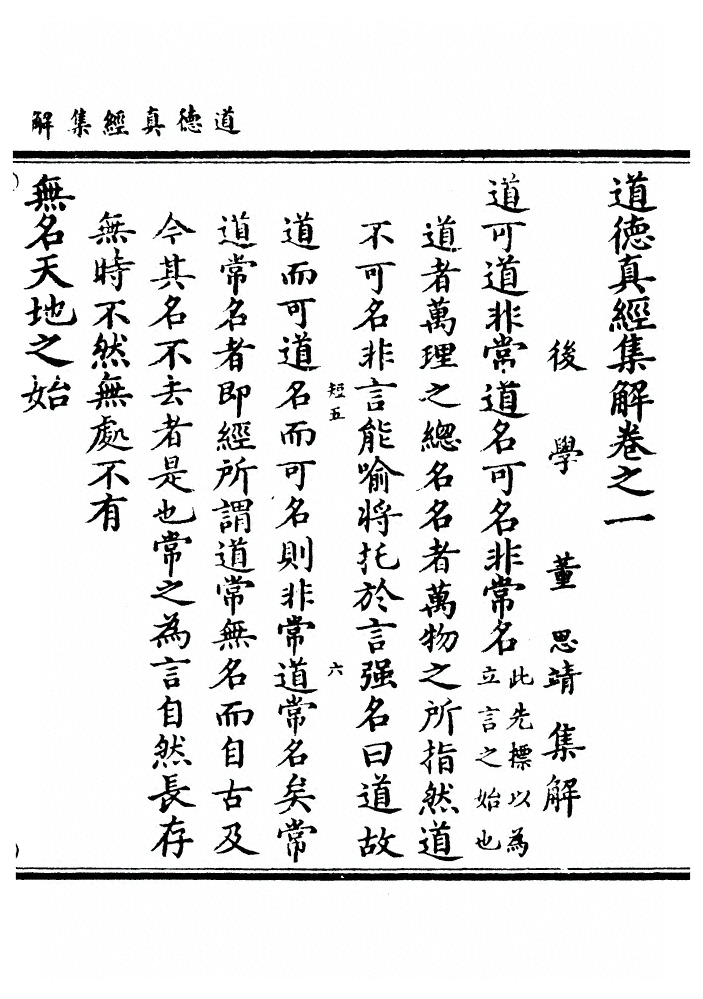 道德真經集解
道德真經集解卷之一
後學董思靖集解
道可道非常道名可名非常名此先標以為立言之始也
道者萬理之總名名者萬物之所指然道
不可名非言能喻將托於言强名曰道故
短五 六
道而可道名而可名則非常道常名矣常
道常名者即經所謂道常無名而自古及
今其名不去者是也常之為言自然長存
無時不然無處不有
無名天地之始